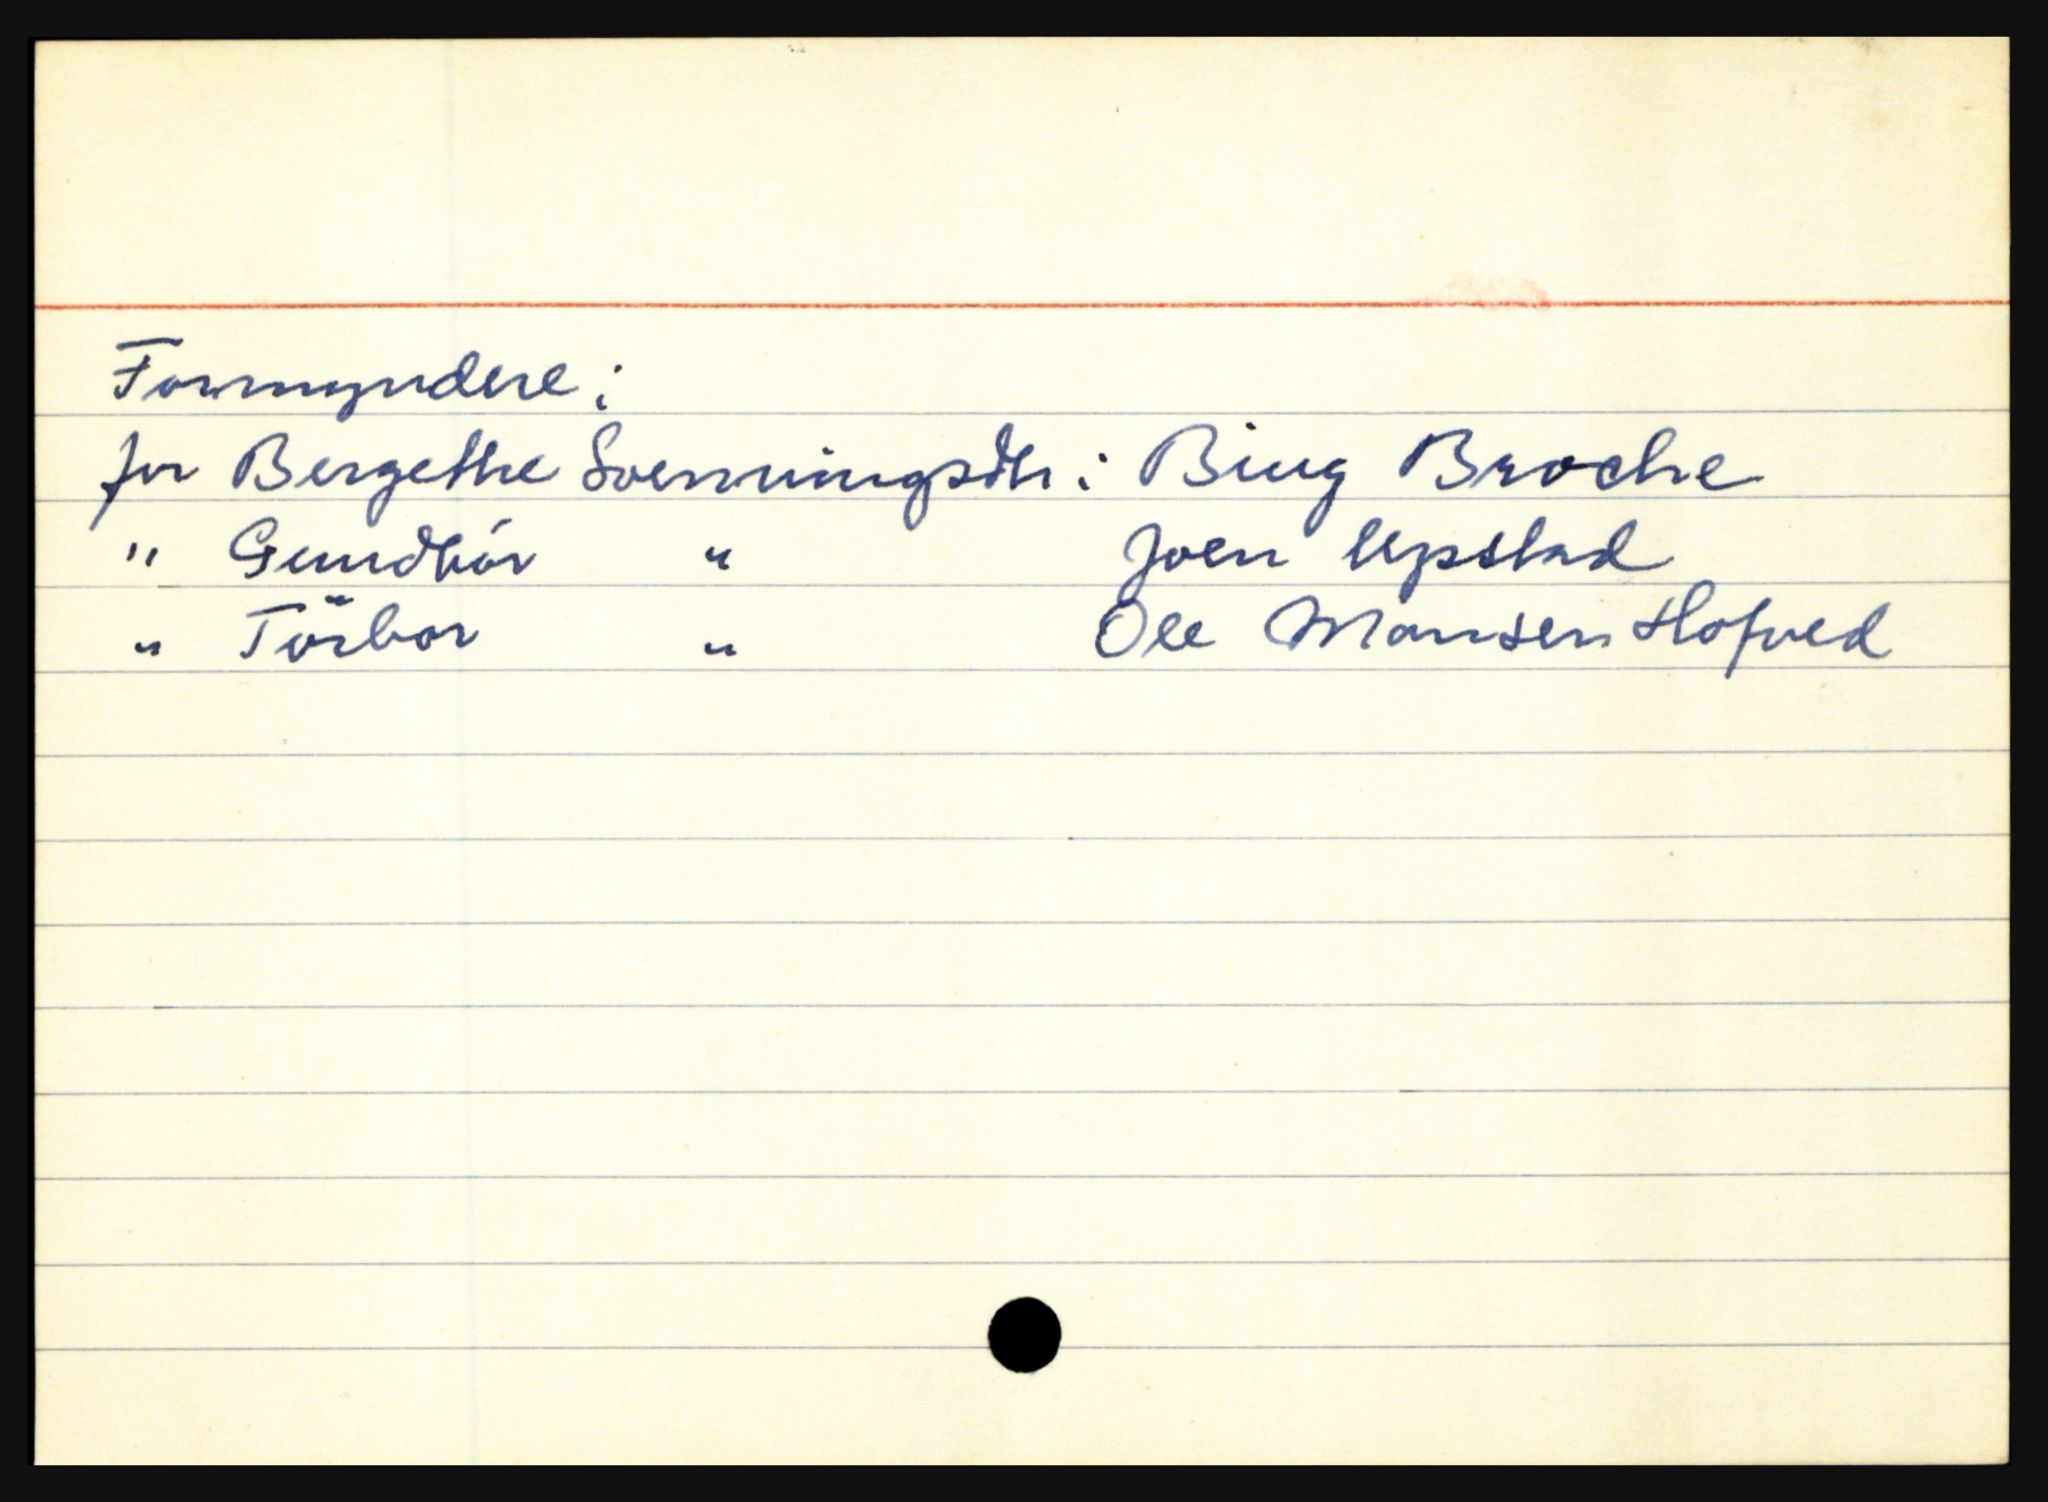 Formyndere:
for Bergethe Svenningsdtr: Biug Broche
" Gundbór " Joen Upstad
" Törbor " Ole Monsen Hofved